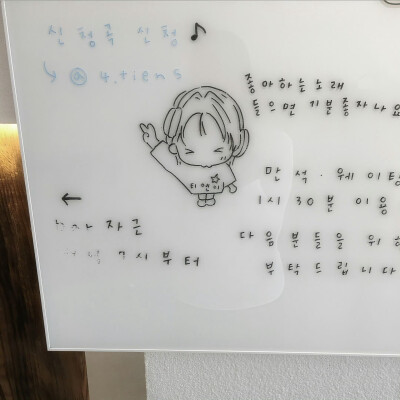 신청곡 신청
@ 4.tiens
좋아하는노래
들으면 기분좋자나요
티앤스
만석·웨이팅
1시30분 이용
다음분들을 위해
부탁드립니다
자른
시부터